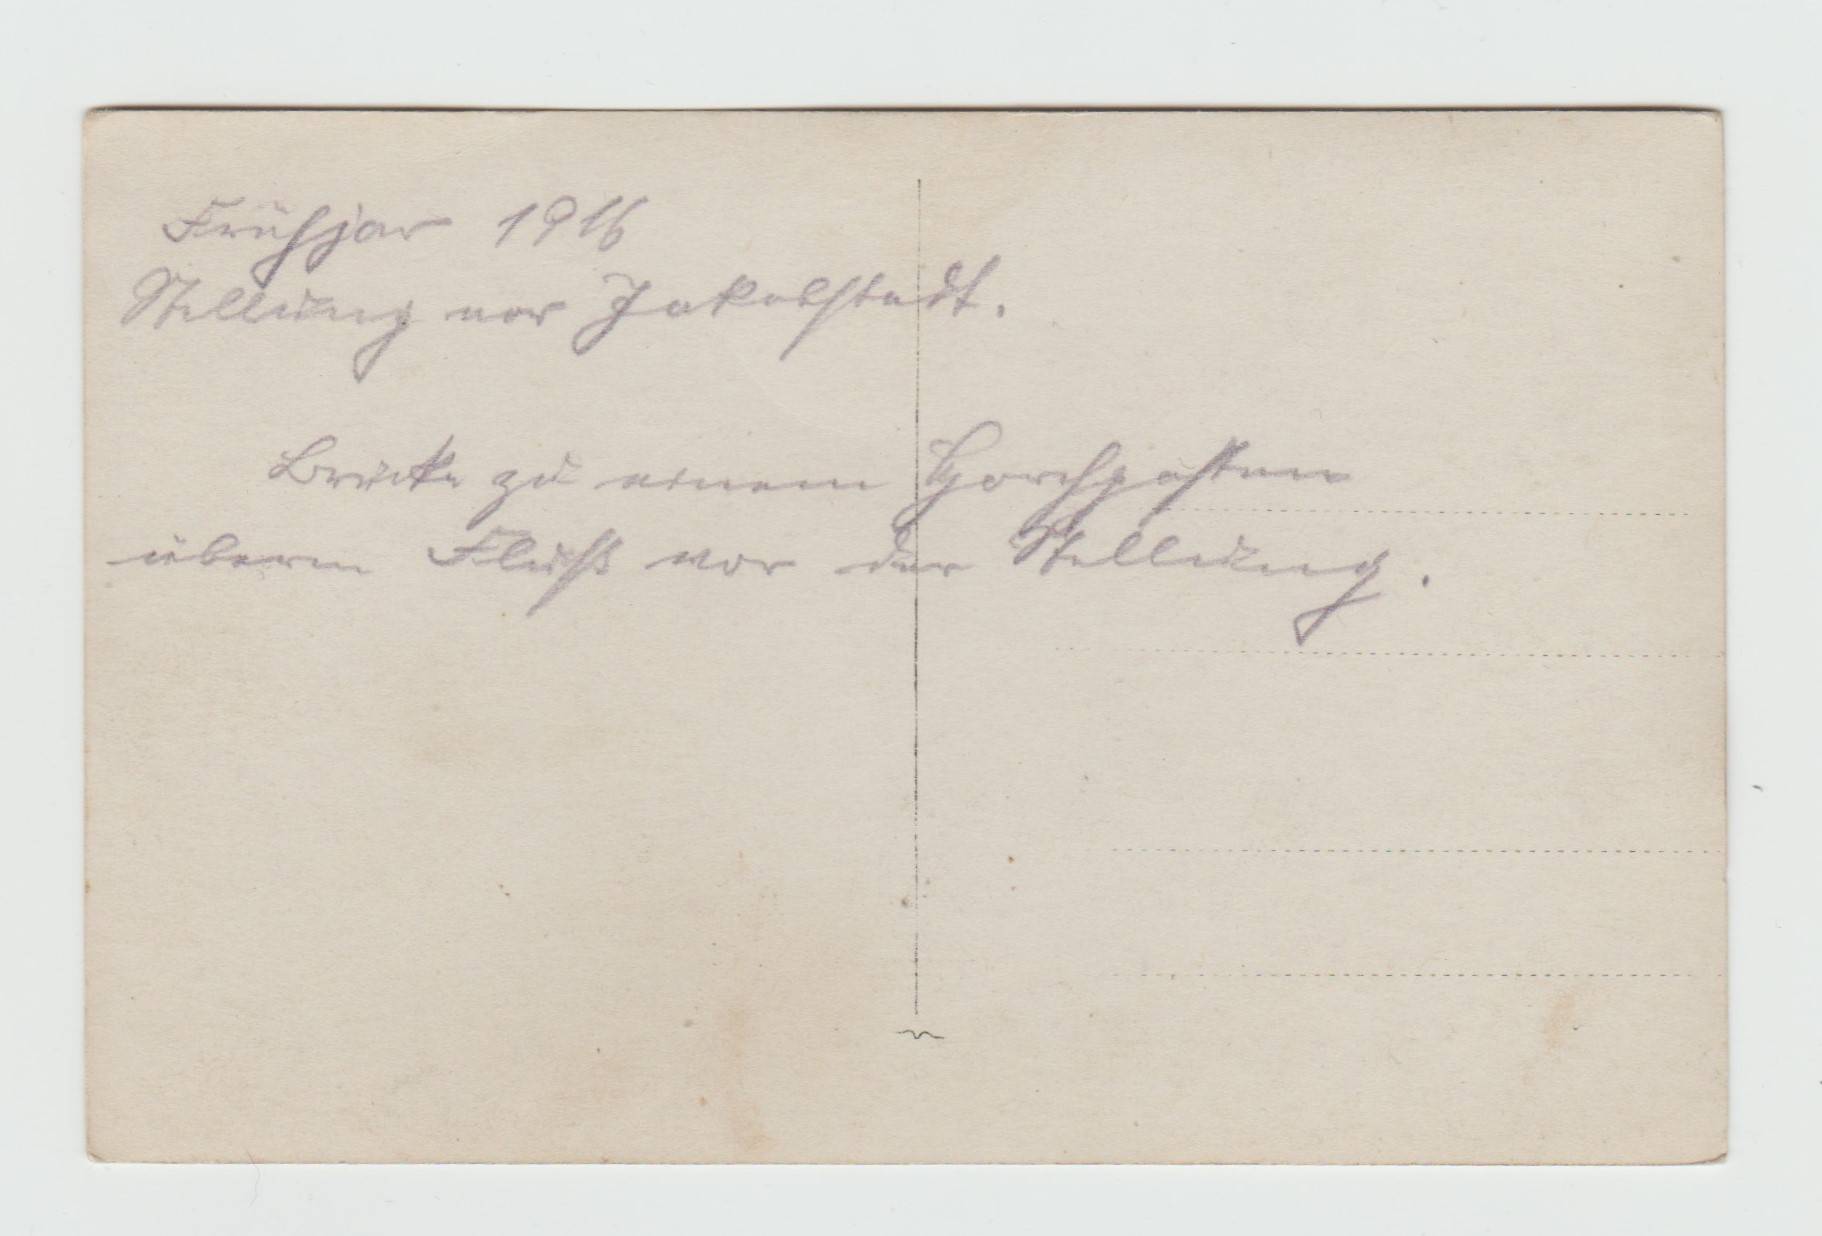 Frühjar 1916
Stellung vor Jakobstadt.
Brücke zu einem Horchposten
überm Fluß vor der Stellung.